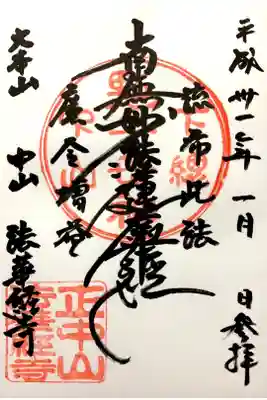 平成卅一年一月 日参拝
流布此法
南無妙法蓮華経
広令増益
大本山 中山 法華経寺
正中山
法華経寺